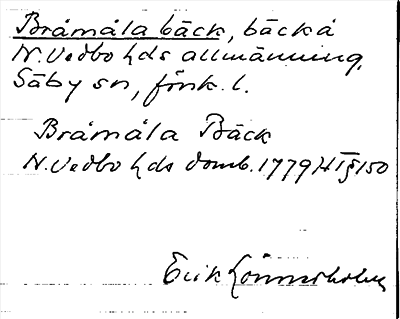 Bråmåla bäck, bäckå
N. Vedbo hds allmänning,
Säby sn, Jönk. l.
Bråmåla Bäck
N. Vedbo hds domb. 1779 H T § 150
Erik Lönnerholm